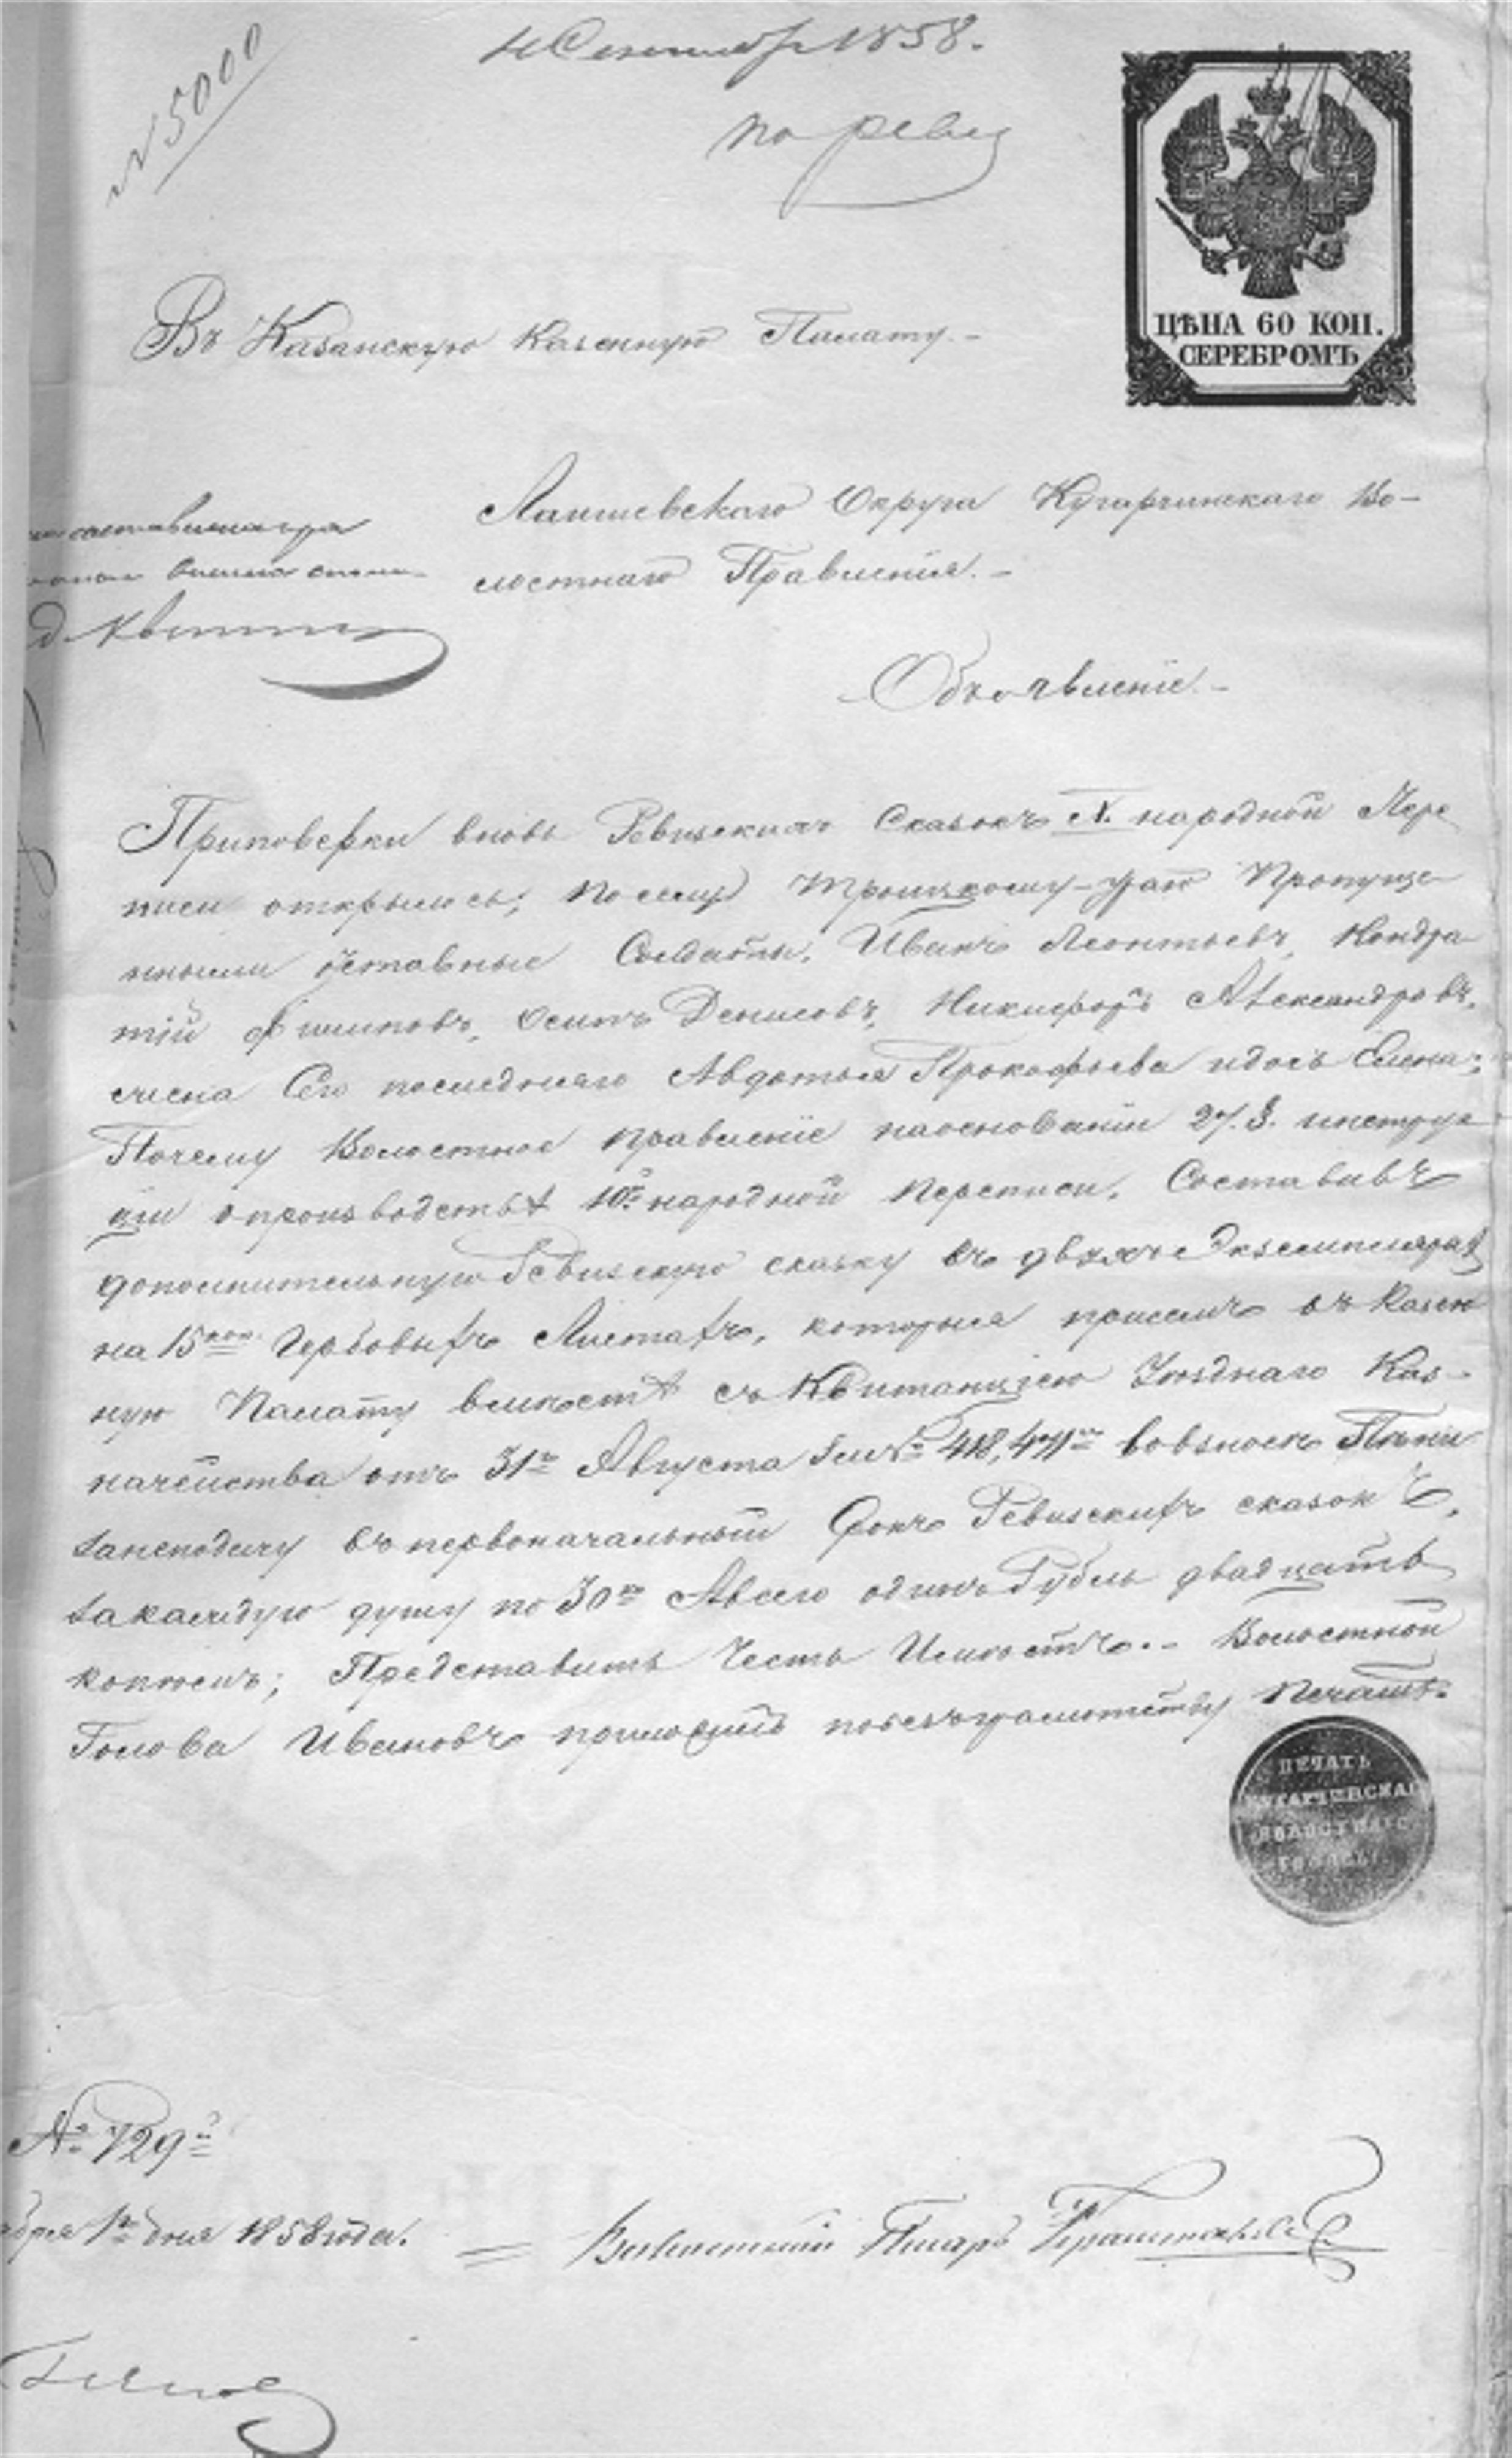 № 5000
4 Сентябр 1858.
по ревиз
ЦѢНА 60 КОП.
СЕРЕБРОМЪ
Въ Казанскую Казенную Палату. –
Лаишевскаго Округа Кугарчинскаго Во-
лостнаго Правленія. –
Объявленіе. –
Приповерки вновь Ревизскихъ Сказокъ X. народной Пере
писи открылось, по селу Троицкому-Урай Пропуще
нными Отставные Солдаты, Иванъ Леонтьевъ, Кондра
тій Филиповъ, Осипъ Денисовъ, Никифоръ Александровъ,
жена Его последняго Авдотья Прокофьева идочь Елена.
Почему Волостное Правленіе наоснованіи 27. §. инструк
ціи опроизводствѣ 10й народной переписи, Составивъ
дополнительную Ревизскую сказку въ двухъ Экземплярахъ
на 15 коп. Гербовыхъ Листахъ, которыя приселъ въ Казен
ную Палату вместѣ съ Квитанціею Уѣзднаго Каз-
начейства отъ 31го Августа № 418, 471 вовзносъ Пѣни
занеподачу въ первоначальный Срокъ Ревизскихъ сказок
закаждую душу по 30 Авсего одинъ Рубль двадцать
копѣекъ; Представить Честь Имѣетъ. – Волостной
Голова Ивановъ приложилъ побезъграмотству Печать.
ПЕЧАТЬ
ВОЛОСТНАГО
ГОЛОВЫ
№ 729й
ября 1го дня 1858 года.
Волостный Писарь